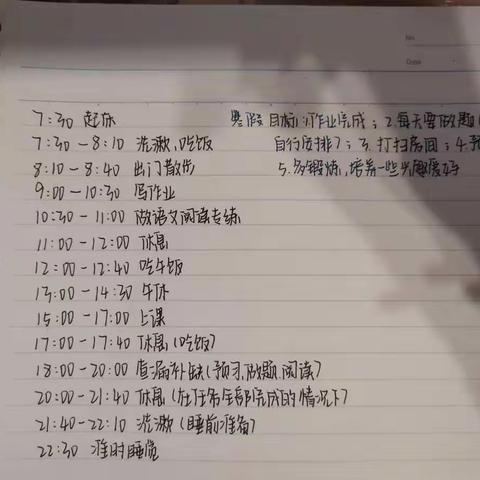 No.
Date
7:30 起床 寒假目标:1.作业完成;2.每天要做题(
7:30-8:10 洗漱、吃饭 自行安排);3.打扫房间;4.预
8:10-8:40 出门散步 5.多锻炼,培养一些兴趣爱好
9:00-10:30 写作业
10:30-11:00 做语文阅读专练
11:00-12:00 休息
12:00-12:40 吃午饭
13:00-14:30 午休
15:00-17:00 上课
17:00-17:40 休息(吃饭)
18:00-20:00 查漏补缺(预习、做题、阅读)
20:00-21:40 休息(在任务全部完成的情况下)
21:40-22:10 洗漱(睡前准备)
22:30 准时睡觉